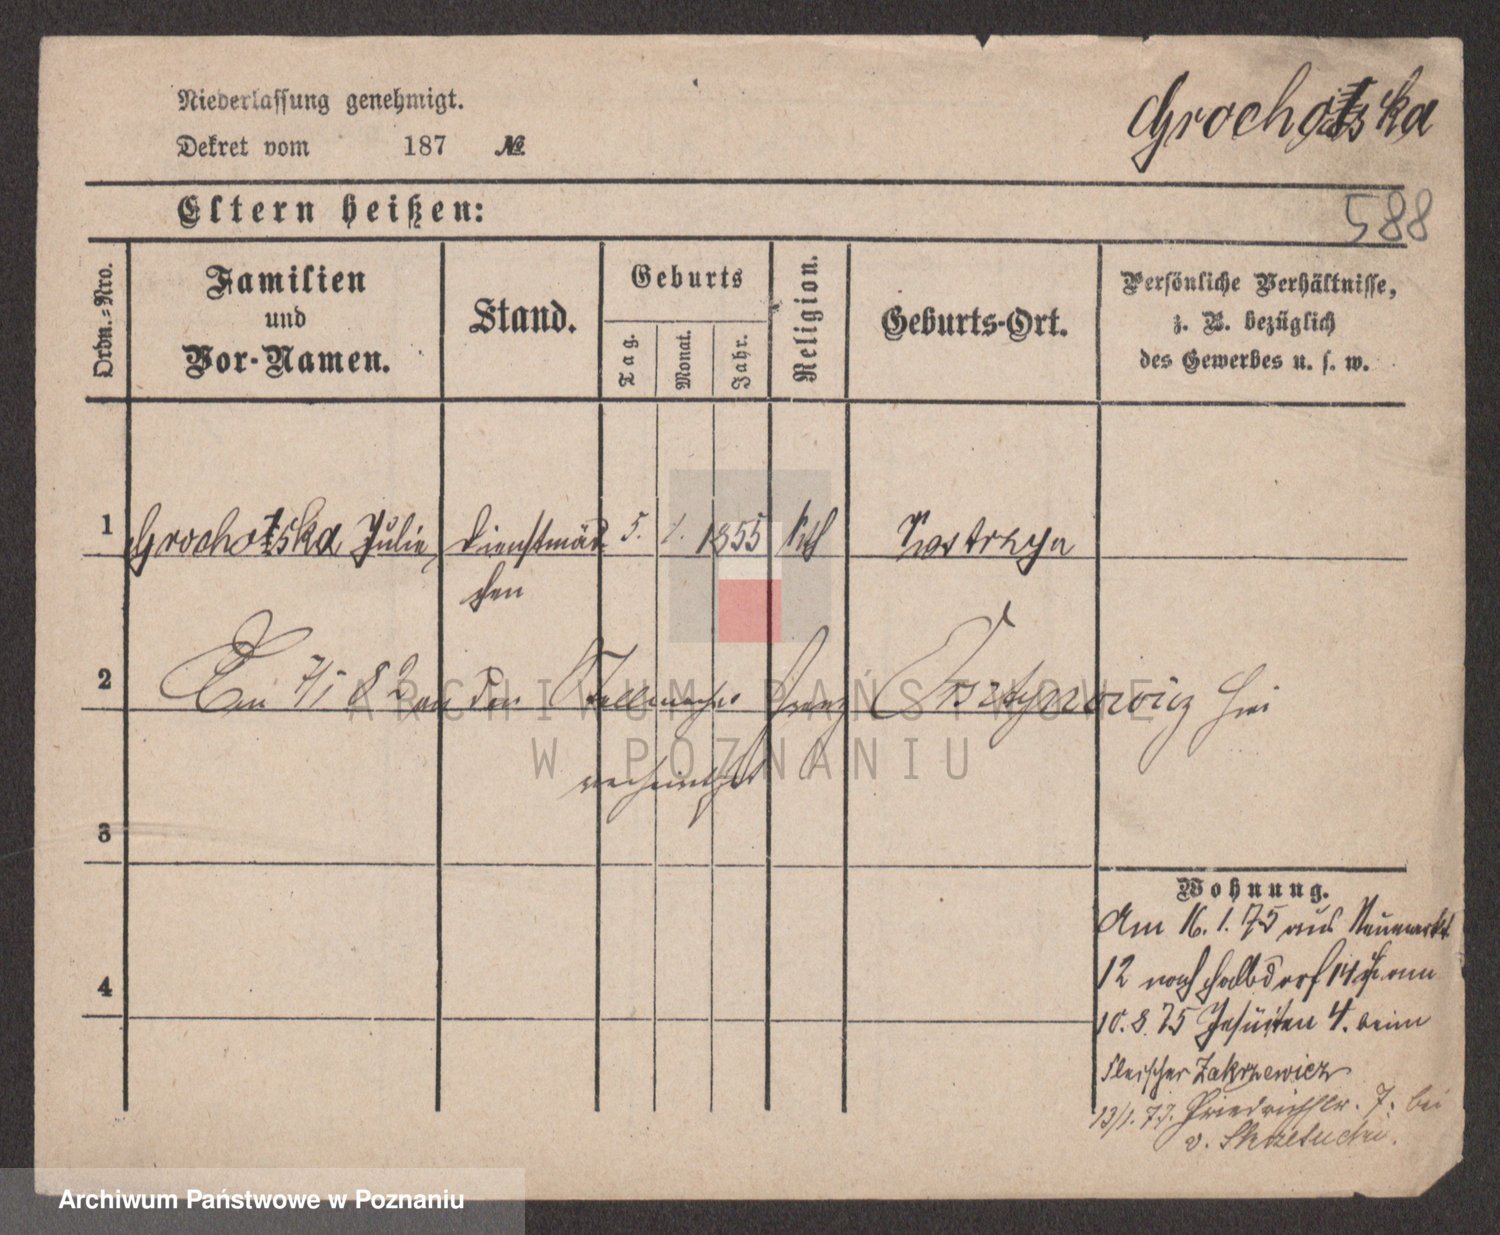 Niederlassung genehmigt.
Grocholska
Dekret vom 187 №
Eltern heißen:
588
Ordn.-Nro.
Familien
und
Vor-Namen.
Stand.
Geburts
Tag.
Monat.
Jahr.
Religion.
Geburts-Ort.
Persönliche Verhältnisse,
z. B. bezüglich
des Gewerbes u. s. w.
1 Grocholska Julie Dienstmäd 5. 1. 1855 kth Kostrzyn
chen
2 82 an den Stellmacher Franz hier
verheirathet
3
4
Wohnung.
Am 16. 1. 75 aus Neumarkt
12 nach Halbdorf 14 am
10. 8. 75 Jesuiten 4. beim
Fleischer Zakrzewicz
13/1. 77. Friedrichstr. 7. bei
v.
ARCHIWUM PAŃSTWOWE
W POZNANIU
Archiwum Państwowe w Poznaniu